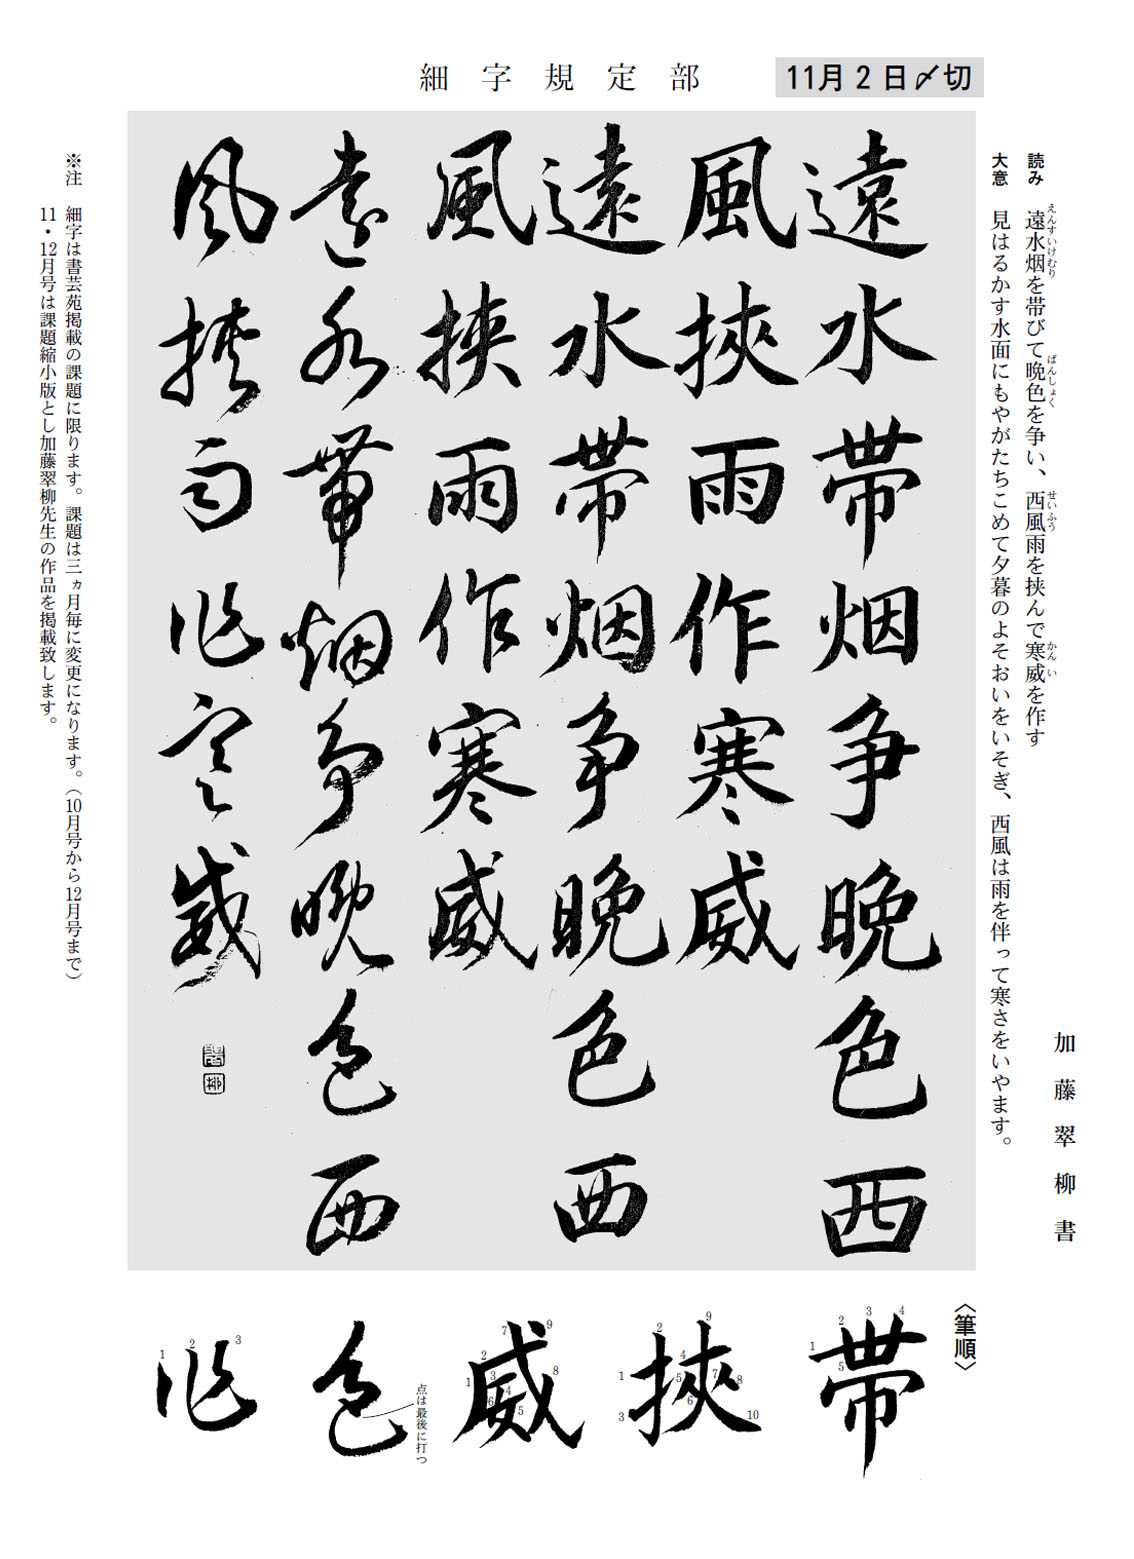 細字規定部
11月2日〆切
加藤翠柳書
読み 遠水烟を帯びて晩色を争い、西風雨を挟んで寒威を作す
えんすいけむり
ばんしょく
せいふう
かんい
大意 見はるかす水面にもやがたちこめて夕暮のよそおいをいそぎ、西風は雨を伴って寒さをいやます。
遠水帯烟争晩色西
風挾雨作寒威
遠水帯烟争晩色西
風挾雨作寒威
遠水帯烟争晩色西
風挾雨作寒威
※注 細字は書芸苑掲載の課題に限ります。課題は三ヵ月毎に変更になります。(10月号から12月号まで)
11・12月号は課題縮小版とし加藤翠柳先生の作品を掲載致します。
〈筆順〉
帯
1 2 3 4 5
挾
1 2 3 4 5 6 7 8 9 10
威
1 2 3 4 5 6 7 8 9
色
点は最後に打つ
作
1 2 3